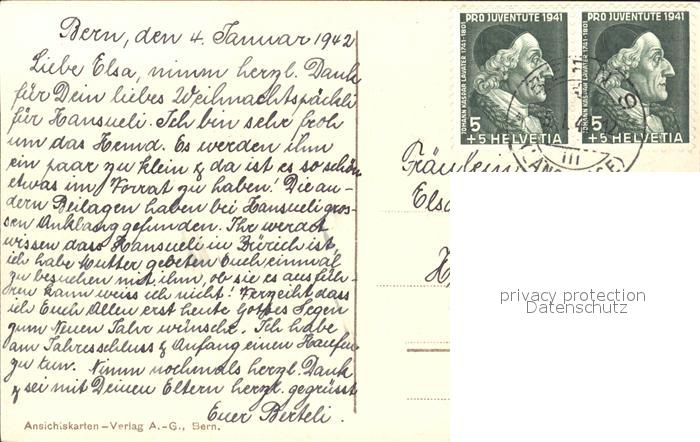 Bern, den 4. Januar 1942
Liebe Elsa, nimm herzl. Dank
für Dein liebes Weihnachtspäckli
für Hansueli. Ich bin sehr froh
um das Hemd. Es werden ihm
ein paar zu klein & da ist es so schön
etwas im Vorrat zu haben! Die an-
dern Beilagen haben bei Hansueli gros-
sen Anklang gefunden. Ihr werdet
wissen dass Hansueli in Zürich ist,
ich habe Mutter gebeten Euch einmal
zu besuchen mit ihm, ob sie es ausfüh-
ren kann weiss ich nicht! Verzeiht dass
ich Euch Allen erst heute Gottes Segen
zum Neuen Jahr wünsche. Ich habe
am Jahresschluss & Anfang einen Haufen
zu tun. Nimm nochmals herzl. Dank
& sei mit Deinen Eltern herzl. gegrüsst
Euer Berteli.
Ansichtskarten – Verlag A.-G., Bern.
PRO JUVENTUTE 1941
JOHANN KASPAR LAVATER 1741-1801
5
+5 HELVETIA
PRO JUVENTUTE 1941
JOHANN KASPAR LAVATER 1741-1801
5
+5 HELVETIA
III
Fräulein
privacy protection
Datenschutz